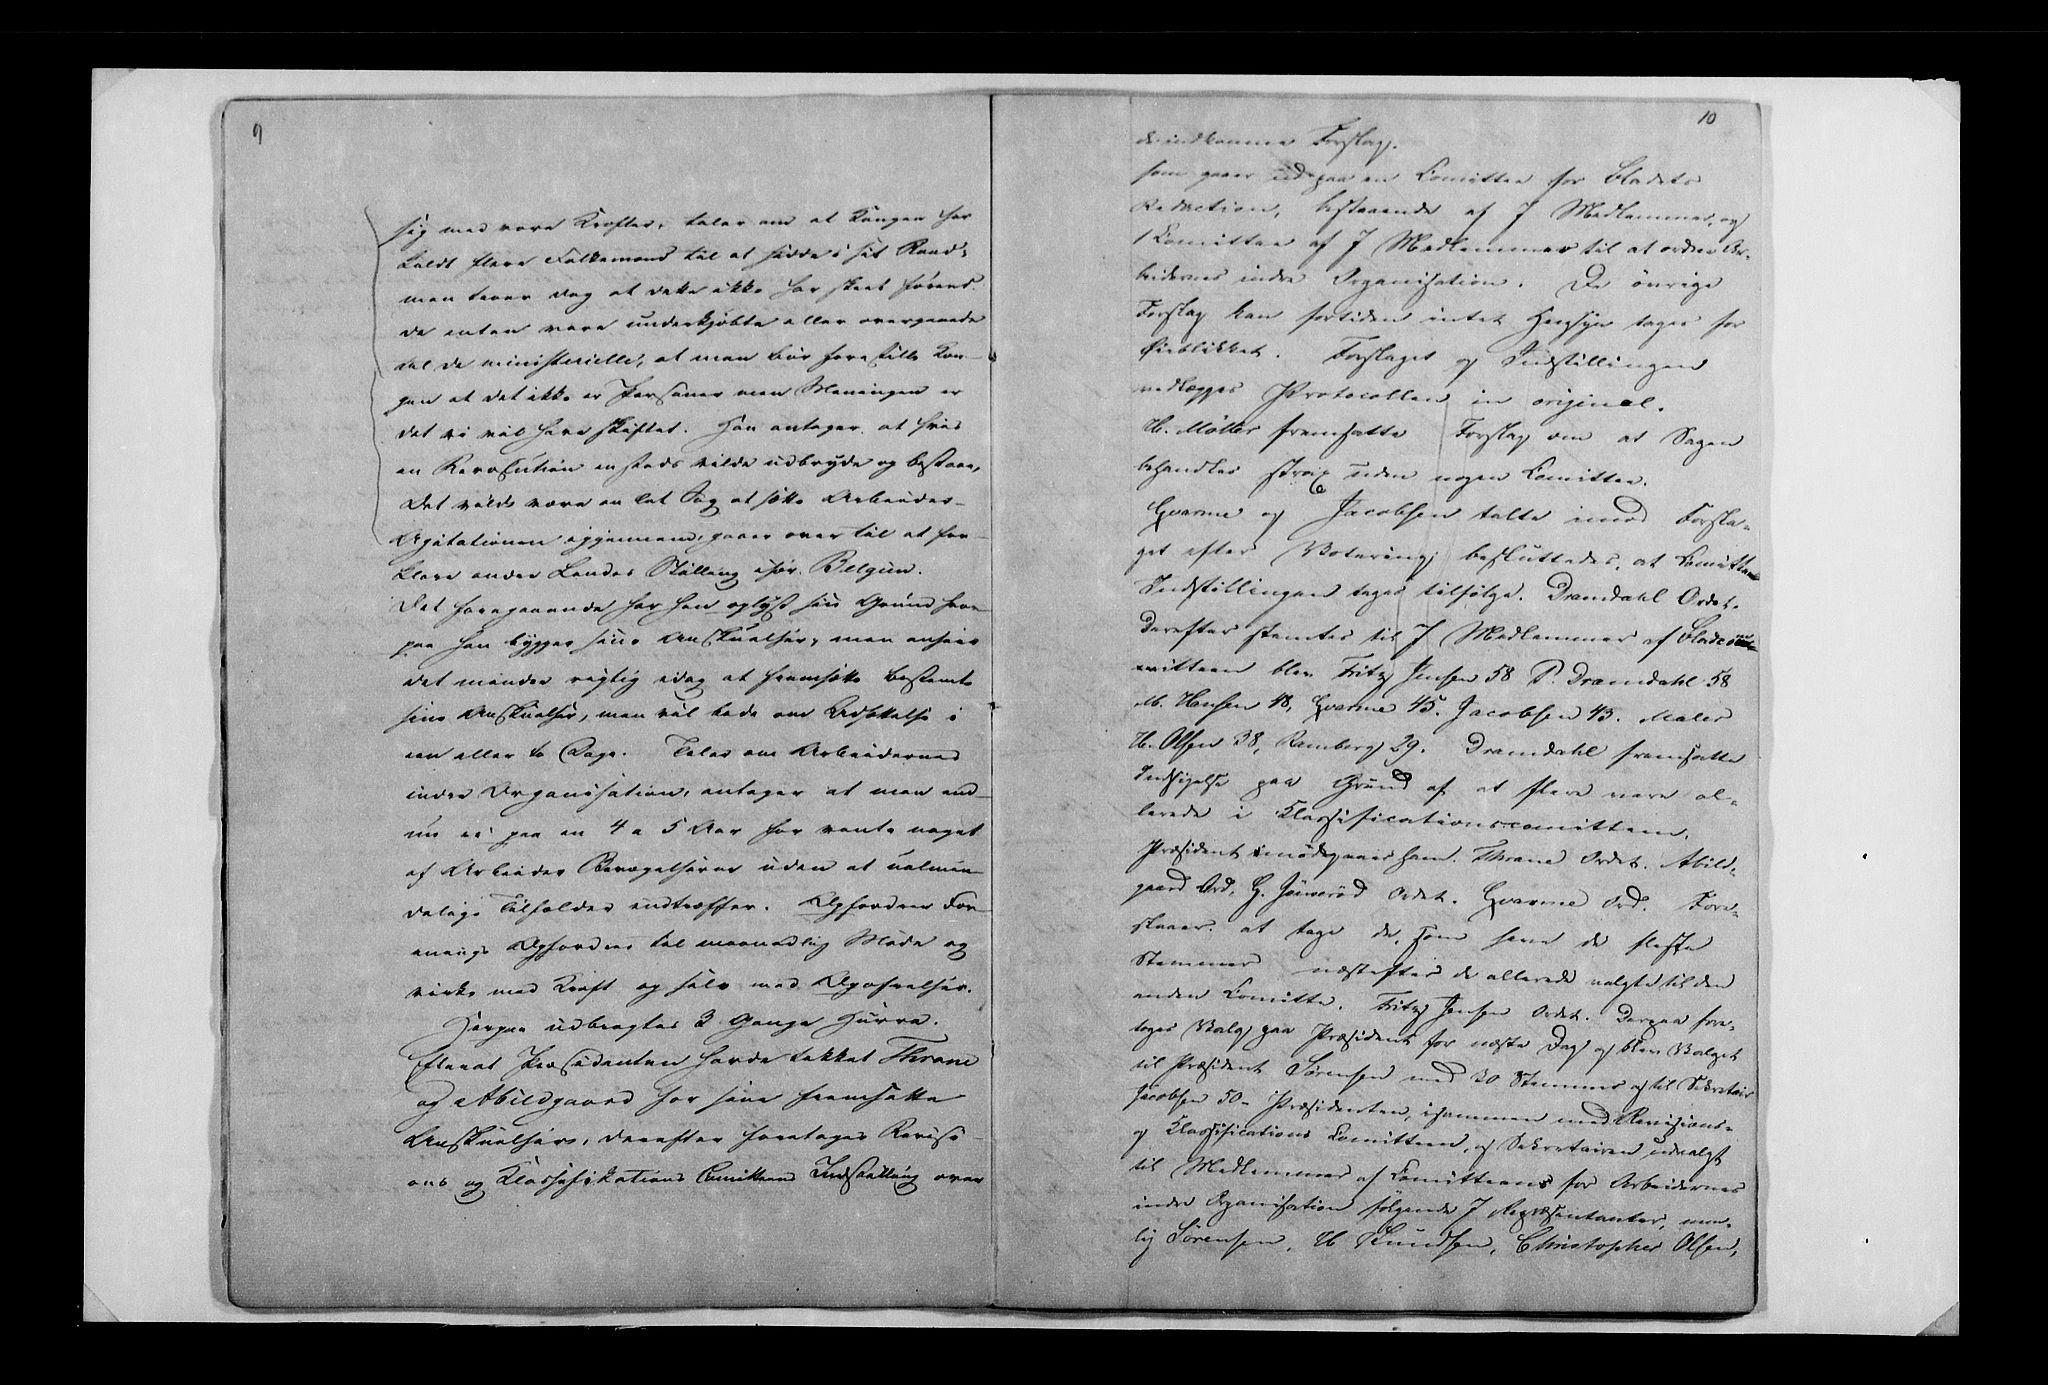 9
sig med vore Krefter, taler om at Kongen har
kaldt flere Folkemænd til at sidde i sit Raad,
man troer dog at dette ikke har skeet førend
de enten vare underkjøbte eller overgaaede
til de ministerielle, at man bør forestille Kon-
gen at det ikke er Personer men Meningen er
det vi vil have skiftet. Han antager at hvis
en Revolution ensteds vilde udbryde og bestaae,
Det vilde være en let Sag at sætte Arbeider-
Agitationen igjennem, gaaer over til at for-
klare andre Landes Stilling især Belgien.
Det foregaaende har han oplyst sin Grund hvor-
paa han bygger sine Anskuelser, men anseer
det mindre rigtig idag at fremsætte bestemte
sine Anskuelser, men vil bede om Udsettelse i
een eller to Dage. Taler om Arbeidernes
indre Organisation, antager at man end-
nu ei paa en 4 a 5 Aar har vente noget
af Arbeider Bevægelserne uden at ualmin-
delige Tilfælder indtræffer. Opfordrer For-
enings til maanedlig Møde og
virke med Kraft og selv med Opofrelser.
Herpaa udbragtes 3 Gange Hurra.
Efterat Præsidenten havde takket Thrane
og Abildgaard for sine fremsatte
Anskuelser, derefter foretages Revisi-
ons og Klassifikations Comitteens Indstilling over
10
de indkomne Forslag.
som gaaer ud paa en Comittee for Bladets
Redaction, bestaaende af 7 Medlemmer, og
1 Comittee af 7 Medlemmer til at ordne Ar-
beidernes indre Organisation. De øvrige
Forslag kan fortiden intet Hensyn tages for
Øieblikket. Forslaget og Indstillingen
vedlægges Protocollen in original.
H. Møller fremsatte Forslag om at Sagen
behandles strax uden nogen Comittee.
Hvarme og Jacobsen talte imod Forsla-
get efter Votering besluttedes, at Comitteens
Indstillingen tages tilfølge. Dramdahl Ordet.
Derefter stemtes til 7 Medlemmer af Bladcom-
mitteen blev Fritz Jensen 58 P. Dramdahl 58
M. Hansen 48, Hvarme 45. Jacobsen 43. Maler
H. Olsen 38, Ramberg 29. Dramdahl fremsatte
Indsigelse paa Grund af at flere vare al-
lerede i Klassificationscomitteen.
Præsident imødegaaer ham. Thrane Ordet. Abild-
gaard Ord, G. Ordet. Hvarme Ord. Fore-
slaaer at tage de, som have de fleste
Stemmer næstefter de allerede valgte til den
anden Comitte. Fritz Jensen Ordet. Derpaa fore-
toges Valg paa Præsident for næste Dag og blev Valget
til Præsident Sørensen med 30 Stemmer og til Sekretair
Jacobsen 50. Præsidenten, isammen med Revisions-
og Klassifications Comitteen, og Sekretairen udvalgt
til Medlemmer af Comitteens for Arbeidernes
indre Organisation følgende 7 Repræsentanter, nem-
lig Sørensen, H Knudsen, Christopher Olsen,